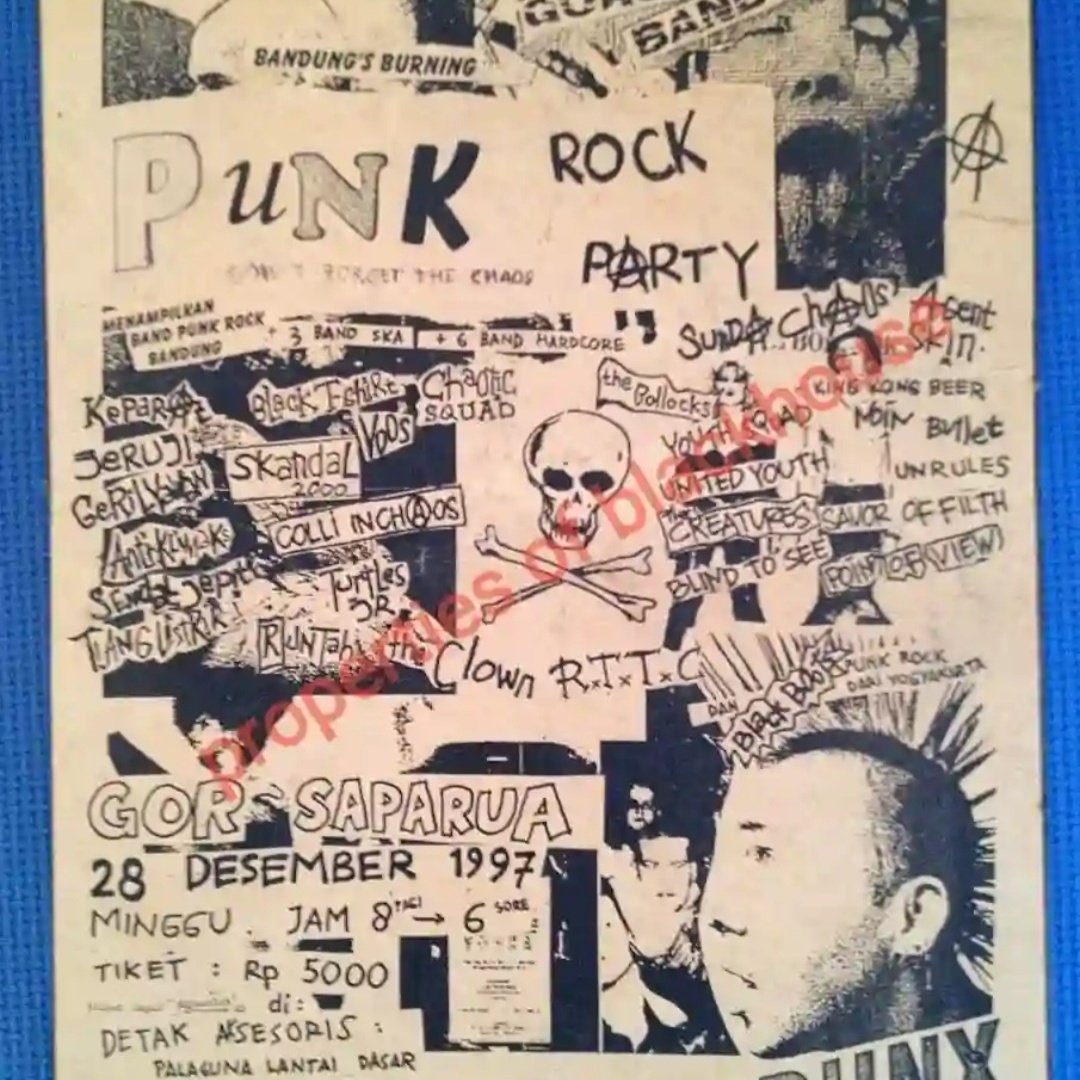 BANDUNG'S BURNING
BAND
PUNK ROCK
PARTY
FORGET THE CHAOS
MENAMPILKAN
BAND PUNK ROCK
BANDUNG
+ 3 BAND SKA + 6 BAND HARDCORE
SUNDA CHAOS'
Agent
Skin.
KepaRAt
Black T-shirt
Chaotic
SQUAD
the Bollocks
KING KONG BEER
JeRUJI
SVOOS
YOUTH SQUAD
NOIN BULLet
Skandal
2000
GeRiLYAWAN
UNITED YOUTH
UNRULES
COLLI INCHAOS
CREATURES
SAVOR OF FILTH
AntiKLymaks
BLIND TO SEE
POINT OF VIEW
SENdAL JepiT
TurtLes
JR.
TIANG LiSTRIK
RUNTah
the Clown
R.T.T.C
PUNK ROCK
DARI YOGYAKARTA
DAN
Black Boots
GOR SAPARUA
28 DESEMBER 1997
MINGGU. JAM 8 PAGI → 6 SORE
TIKET : Rp 5000
di:
DETAK AKSESORIS :
PALAGUNA LANTAI DASAR
PUNX
properties of blackhouse